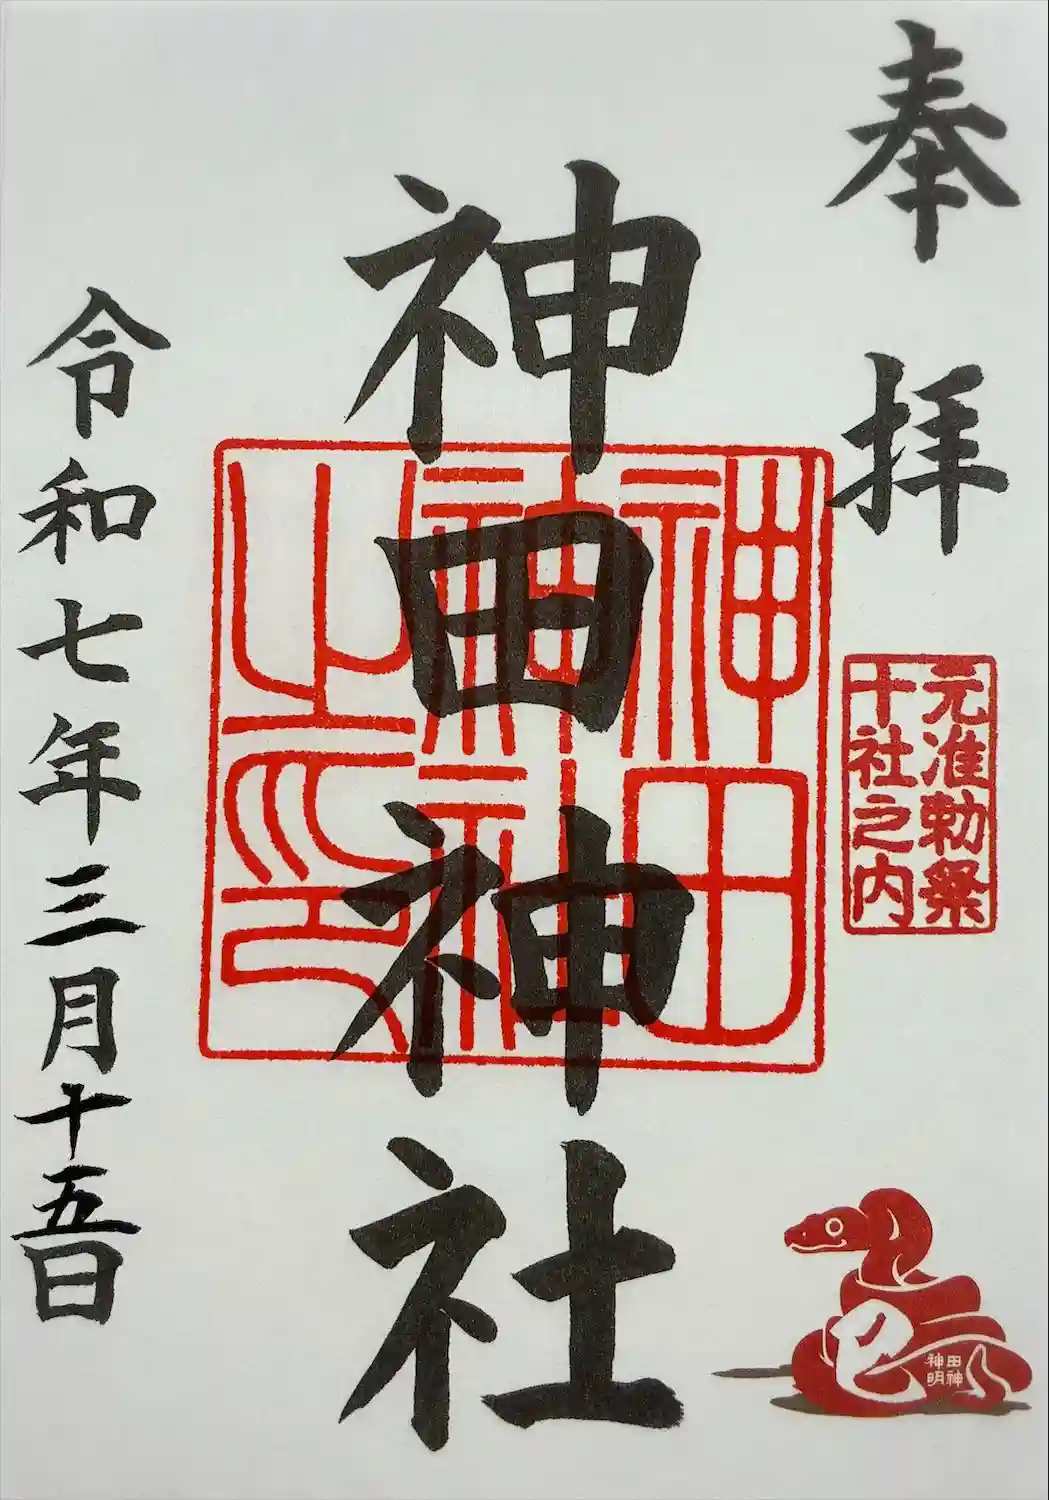 奉拝
元准勅祭
十社之内
神田神社
神田
神社
之印
令和七年三月十五日
巳
田神
神明